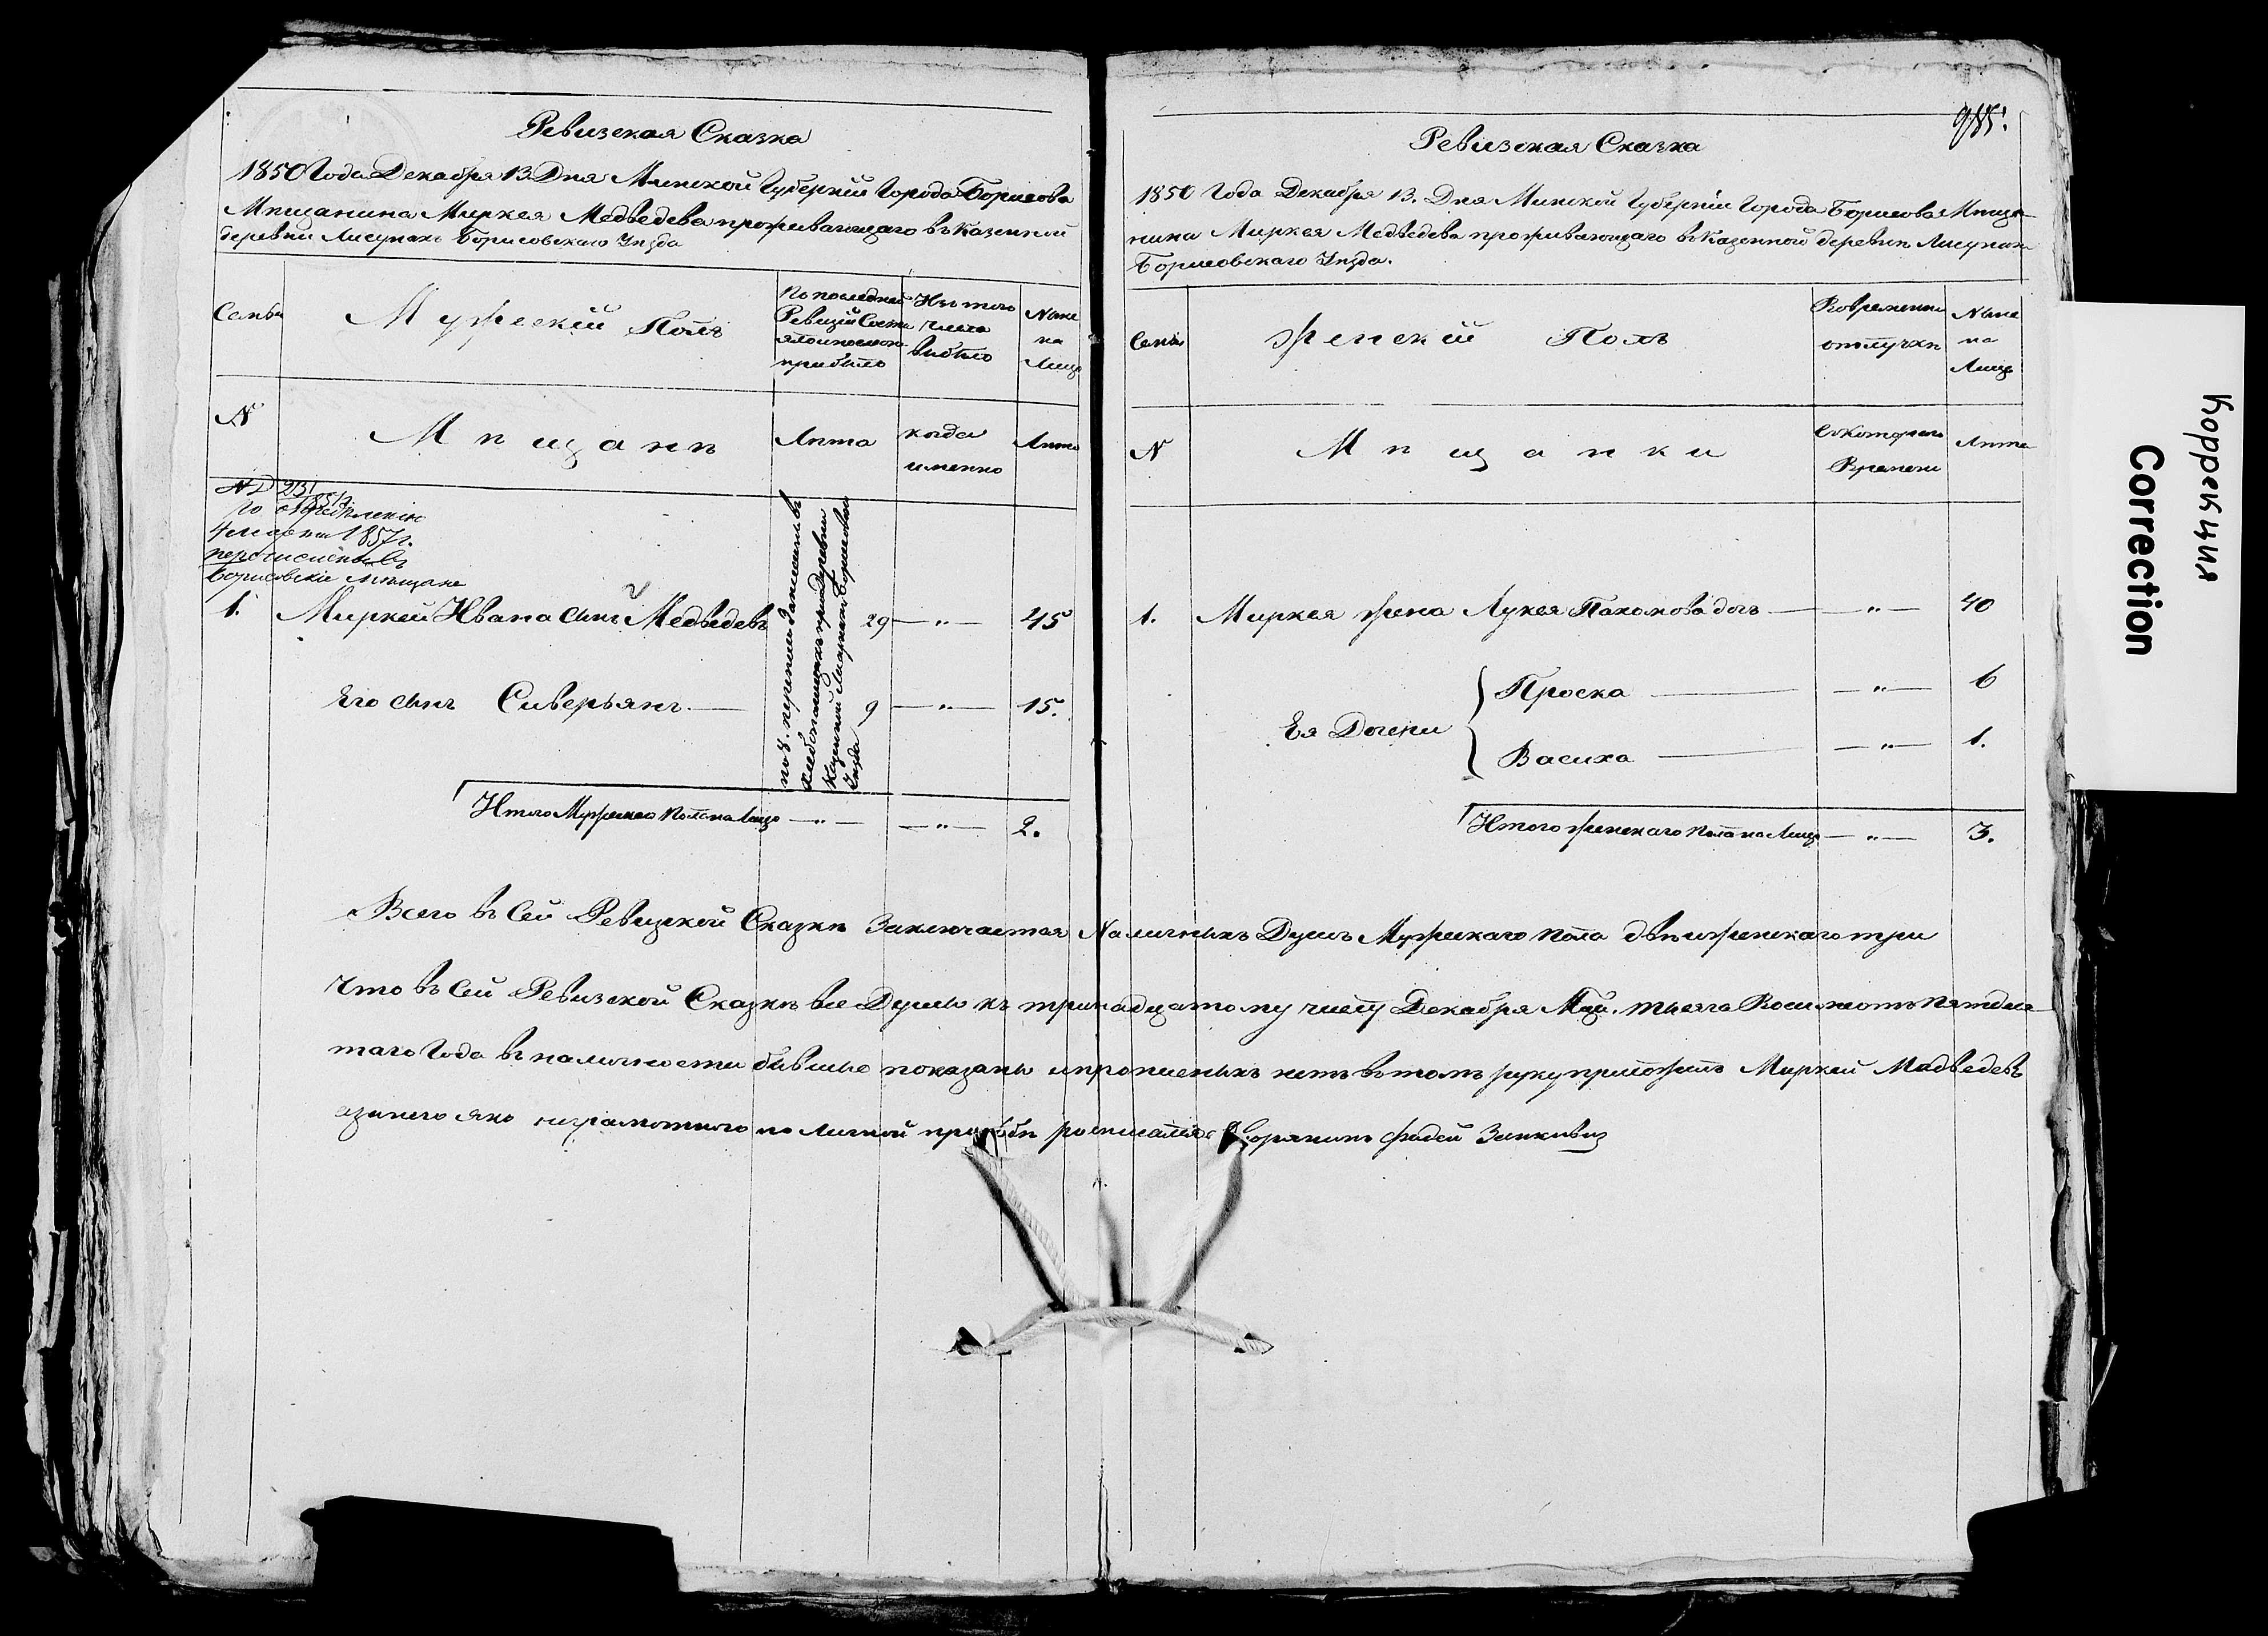 Ревизская Сказка
1850 Года Декабря 13 Дня Минской Губернии Города Борисова
Мѣщанина Миркея Медведева проживающаго въ Казенной
деревни Лисунахъ Борисовскаго Уѣзда
Семьи
Мужескій Полъ
По последней
Ревизіи Состо
яло и после
прибыло
Изъ того
числа
выбыло
Ныне
на
Лицо
N
Мѣщане
Лѣта
когда
именно
Лѣта
по определенію
4 марта 1857 г.
перечислены въ
Борисовскіе мѣщане
1. Миркей Ивана сынъ Медведевъ 29 — " — 45
Его сынъ Сиверьянъ — 9 — " — 15.
Казенной
Уѣзда
Итого Мужеска Пола на Лицо — " — — " — 2.
985.
Ревизская Сказка
1850 Года Декабря 13. Дня Минской Губерніи Города Борисова Мѣща-
нина Миркея Медведева проживающаго въ Казенной деревнѣ Лисунахъ
Борисовскаго Уѣзда.
Семьи
Женскій Полъ
Во временной
отлучкѣ
Ныне
на
Лицо
N
Мѣщанки
Съ котораго
Времени
Лѣта
1. Миркея жена Лукея Пахомова дочь — " — 40
Ея Дочери
Проска — " — 6
Васиха — " — 1.
Итого женскаго пола на Лицо — " — 3.
Всего въ Сей Ревизской Сказкѣ Заключается Наличныхъ Душъ Мужескаго пола двѣ и женскаго три
Что въ Сей Ревизской Сказкѣ все Души къ тринадцатому числу Декабря Тысяча Восемсотъ Пятдеся-
таго Года въ наличности бывшіе показаны и прописныхъ нетъ въ томъ руку приложилъ Миркей Медведевъ
а за него яко неграмотного по личной прозьбѣ росписался Дворянинъ Фадей Зенкевич
Коррекция
Correction